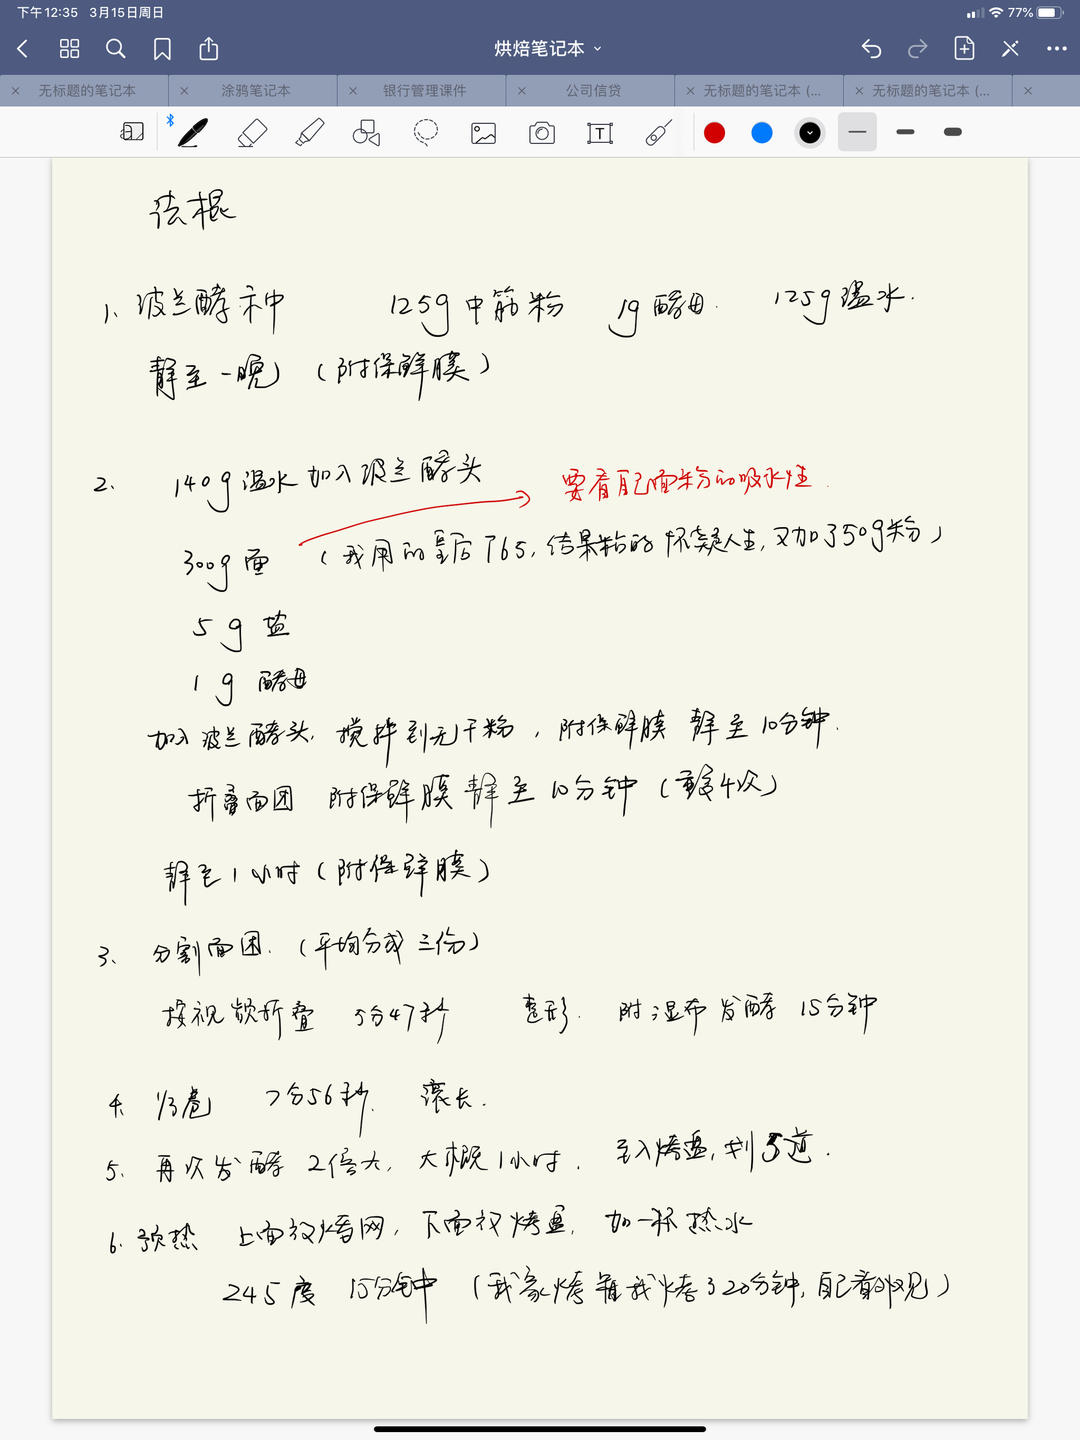 下午12:35 3月15日周日
77%
烘焙笔记本
无标题的笔记本 涂鸦笔记本 银行管理课件 公司信贷 无标题的笔记本 (... 无标题的笔记本 (...
法棍
1、波兰酵种 125g中筋粉 1g酵母. 125g温水.
静至一晚 (附保鲜膜)
2、 140g温水加入波兰酵头
要看自己面粉的吸水性.
300g面 (我用的皇后T65,结果粘的怀疑人生,又加了50g粉)
5g 盐
1g 酵母
加入波兰酵头,搅拌到无干粉,附保鲜膜 静至10分钟.
折叠面团 附保鲜膜静至10分钟 (重复4次)
静至1小时(附保鲜膜)
3、 分割面团.(平均分成三份)
按视频折叠 5分47秒 整形. 附湿布发酵 15分钟
4、 7分56秒. 滚长.
5、 再次发酵 2倍大,大概1小时. 入烤盘,划5道.
6、预热 上面放烤网,下面放烤盘,加一杯热水
245度 15分钟 (我家烤箱我烤了20分钟,自己看)